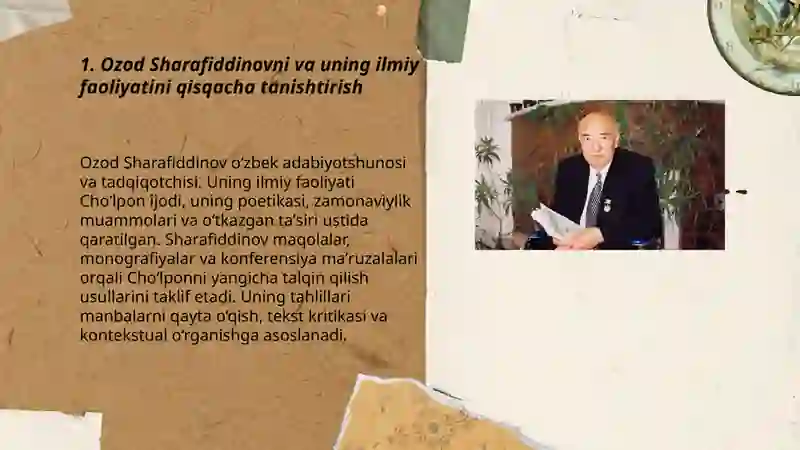 1. Ozod Sharafiddinovni va uning ilmiy
faoliyatini qisqacha tanishtirish
Ozod Sharafiddinov o‘zbek adabiyotshunosi
va tadqiqotchisi. Uning ilmiy faoliyati
Cho‘lpon ijodi, uning poetikasi, zamonaviylik
muammolari va o‘tkazgan ta’siri ustida
qaratilgan. Sharafiddinov maqolalar,
monografiyalar va konferensiya ma’ruzalalari
orqali Cho‘lponni yangicha talqin qilish
usullarini taklif etadi. Uning tahlillari
manbalarni qayta o‘qish, tekst kritikasi va
kontekstual o‘rganishga asoslanadi.